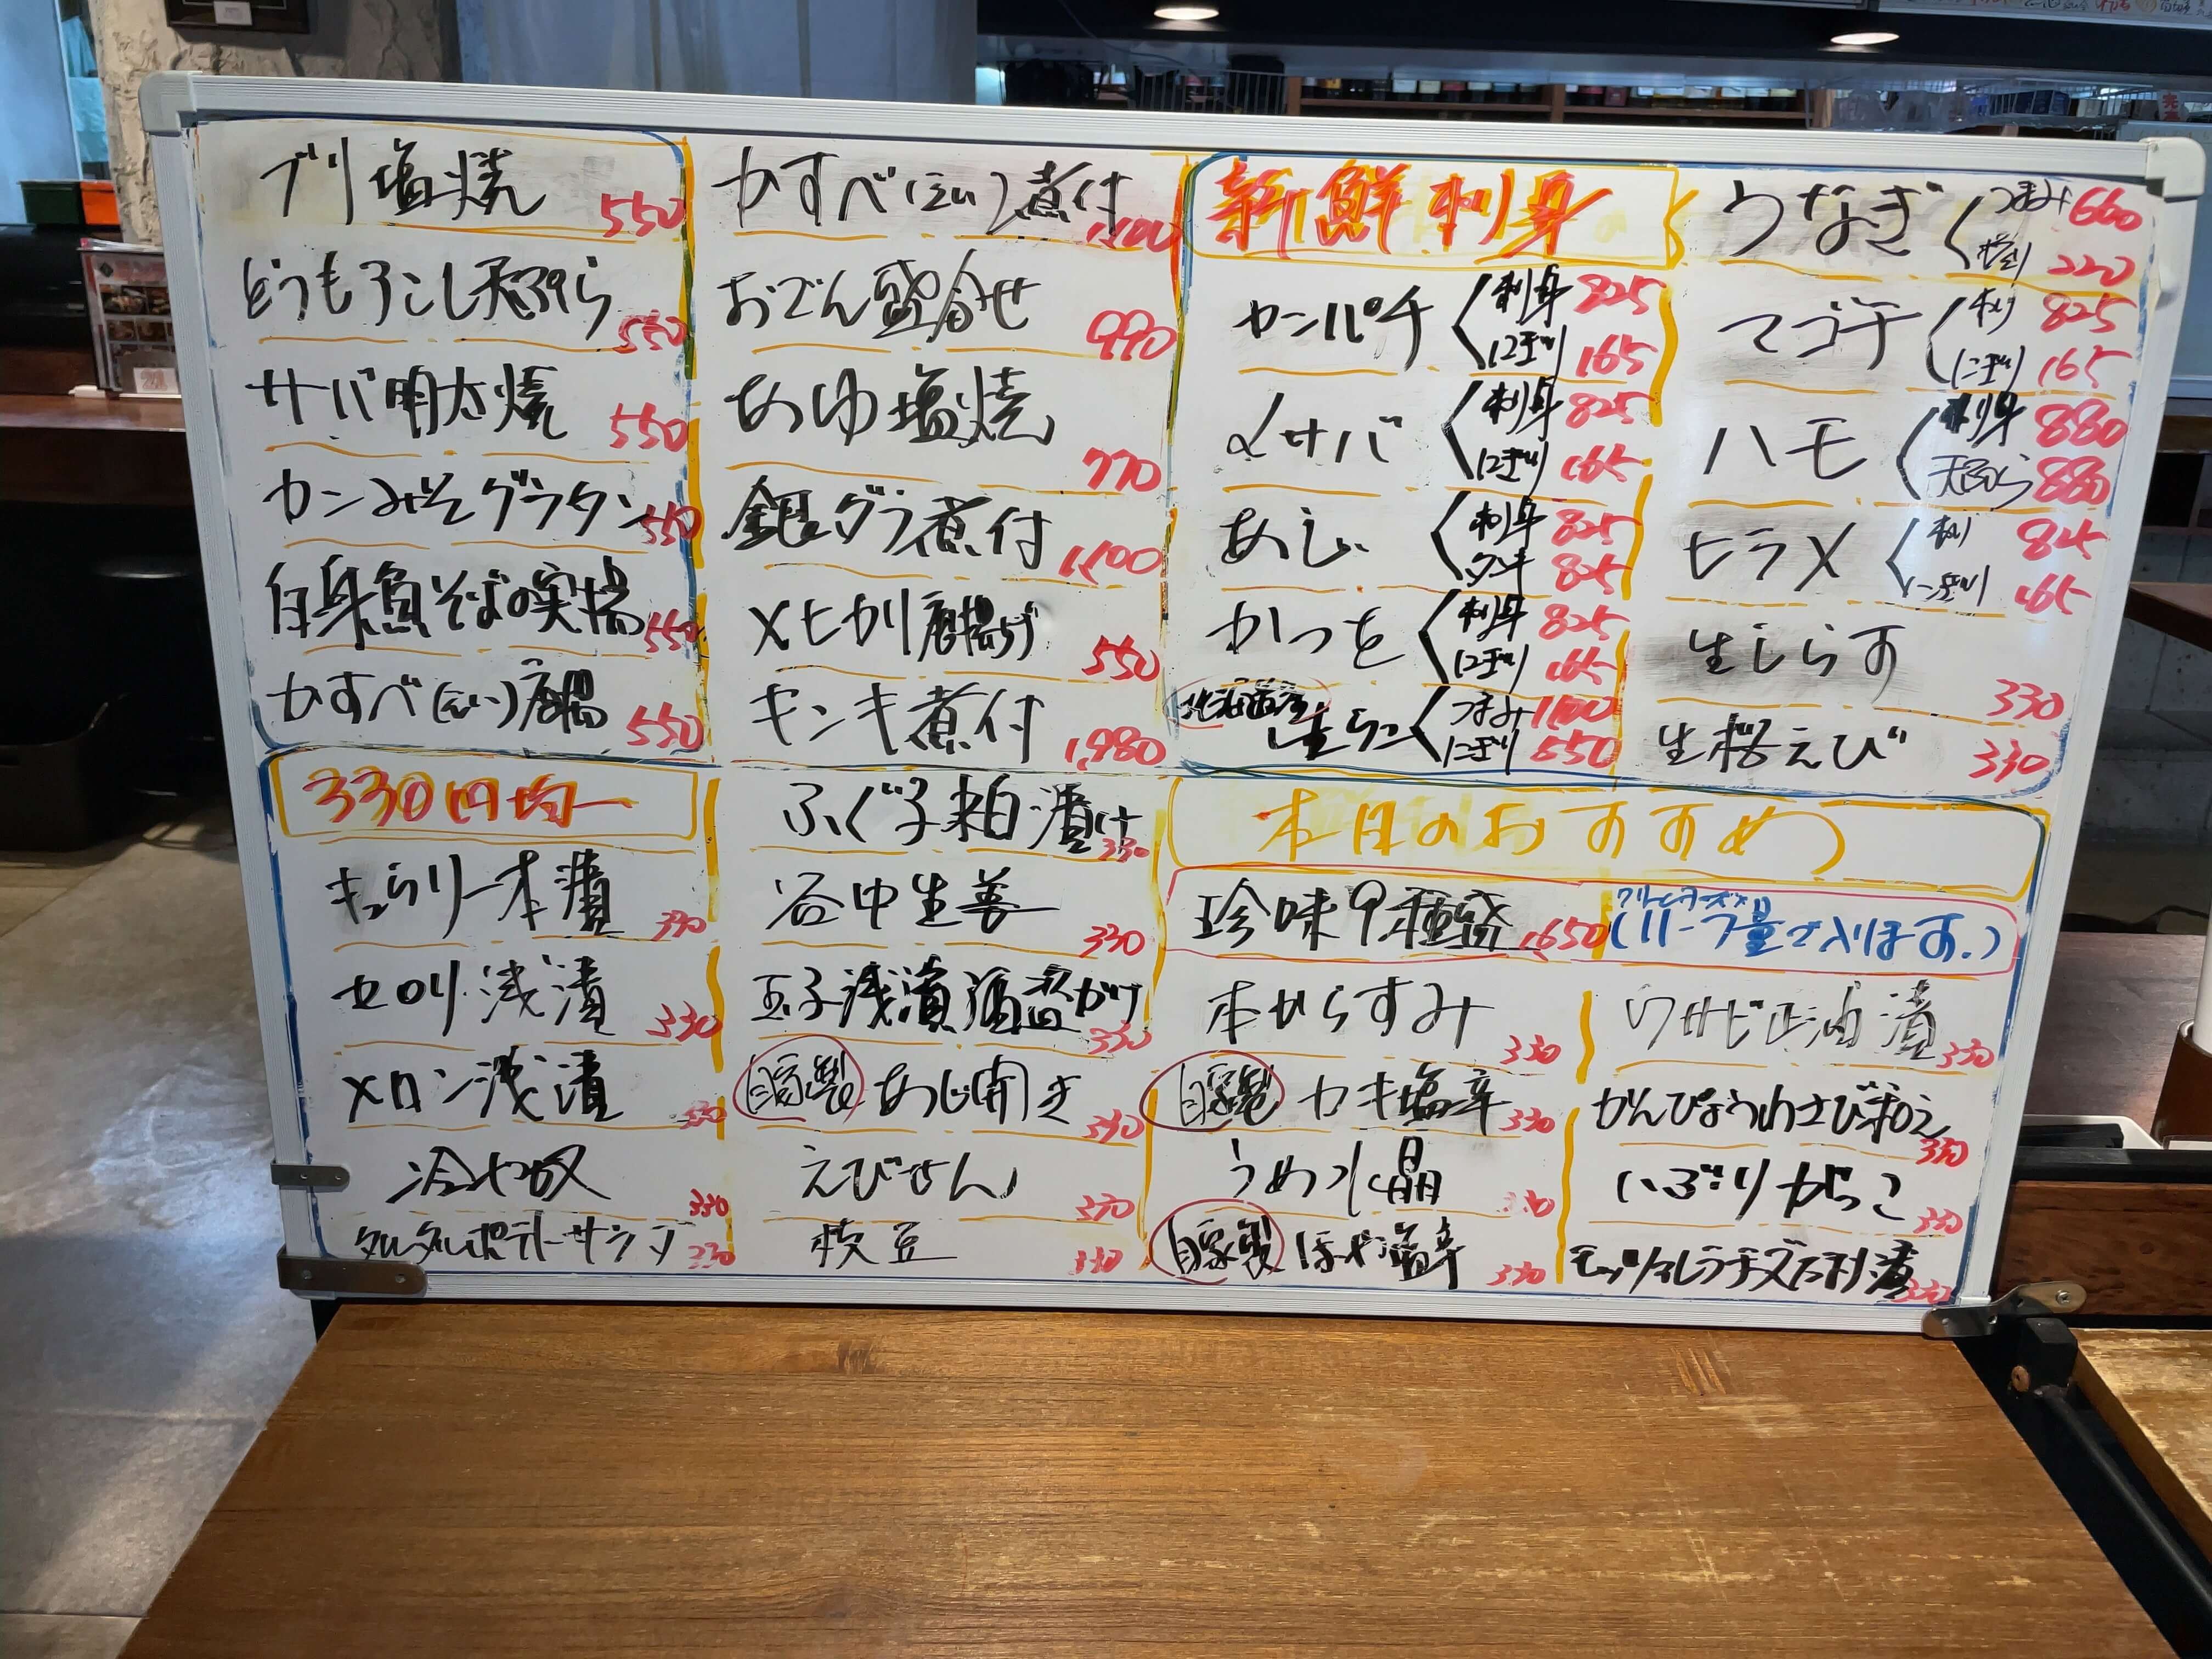 ブリ塩焼 550
とうもろこし天ぷら 550
サバ明太焼 550
カニみそグラタン 550
白身魚そばの実揚 550
かすべ(えい)唐揚 550
かすべ(えい)煮付 1,100
おでん盛合せ 990
あゆ塩焼 770
銀ダラ煮付 1,100
メヒカリ唐揚げ 550
キンキ煮付 1,980
新鮮刺身
カンパチ 刺身 825
にぎり 165
〆サバ 刺身 825
にぎり 165
あじ 刺身 825
タタキ 825
かつを 刺身 825
にぎり 165
北海道産 生うに つまみ 1100
にぎり 550
うなぎ つまみ 660
握り 220
マゴチ 刺 825
にぎり 165
ハモ 刺身 880
天ぷら 880
ヒラメ 刺 825
にぎり 165
生しらす 330
生桜えび 330
330円均一
きゅうり一本漬 330
セロリ浅漬 330
メロン浅漬 330
冷や奴 330
タルタルポテトサラダ 330
ふぐ子粕漬け 330
谷中生姜 330
玉子浅漬酒盗がけ 330
自家製 あじ開き 330
えびせん 330
枝豆 330
本日のおすすめ
珍味9種盛 1,650
クリームチーズ
(ハーフ量で入ります。)
本からすみ 330
自家製 カキ塩辛 330
うめ水晶 330
自家製 ほや塩辛 330
ワサビ正油漬 330
かんぴょうわさび和え 330
いぶりがっこ 330
モッツァレラチーズたまり漬 330